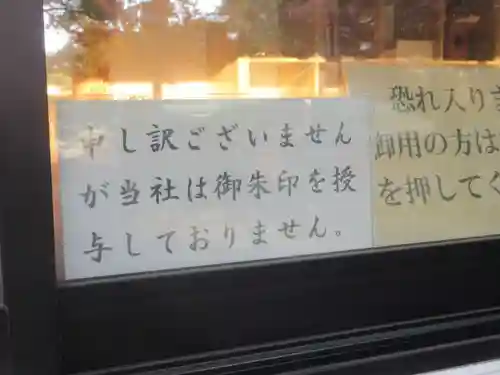 申し訳ございません
が当社は御朱印を授
与しておりません。
恐れ入り
御用の方は
を押して